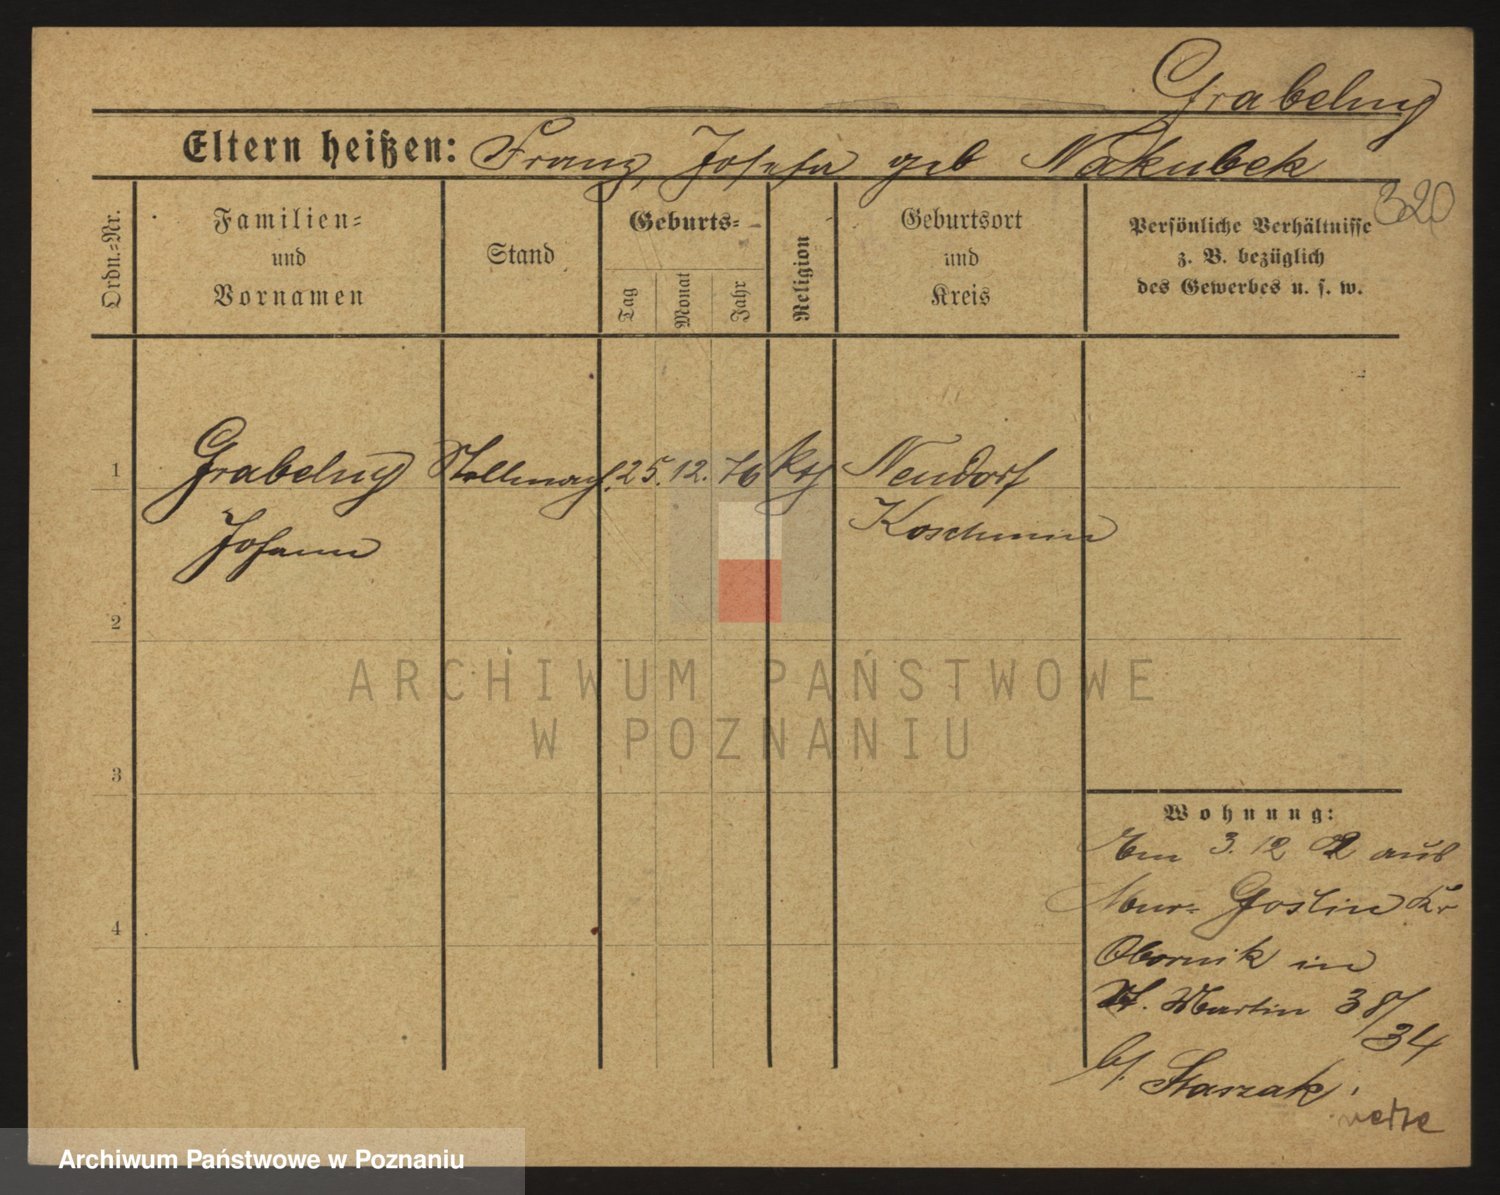 Grabelny
Eltern heißen: Franz, Josefa geb Nakubek
320
Ordn.-Nr.
Familien-
und
Vornamen
Stand
Geburts-
Tag
Monat
Jahr
Religion
Geburtsort
und
Kreis
Persönliche Verhältnisse
z. B. bezüglich
des Gewerbes u. s. w.
1
Grabelny Stellmach. 25. 12. 76 kth Neudorf
Johann
Koschmin
2
3
4
Wohnung:
Am 3. 12 02 aus
Mur= Goslin Kr
Obornik in
St. Martin 38/34
b/. Staszak
ARCHIWUM PAŃSTWOWE
W POZNANIU
Archiwum Państwowe w Poznaniu